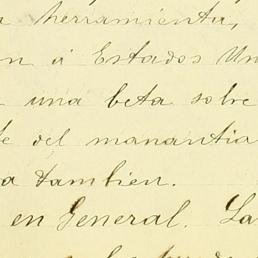 a herramienta,
n á Estados Un
una beta sobre
te del manantia
a tambien.
en General. La